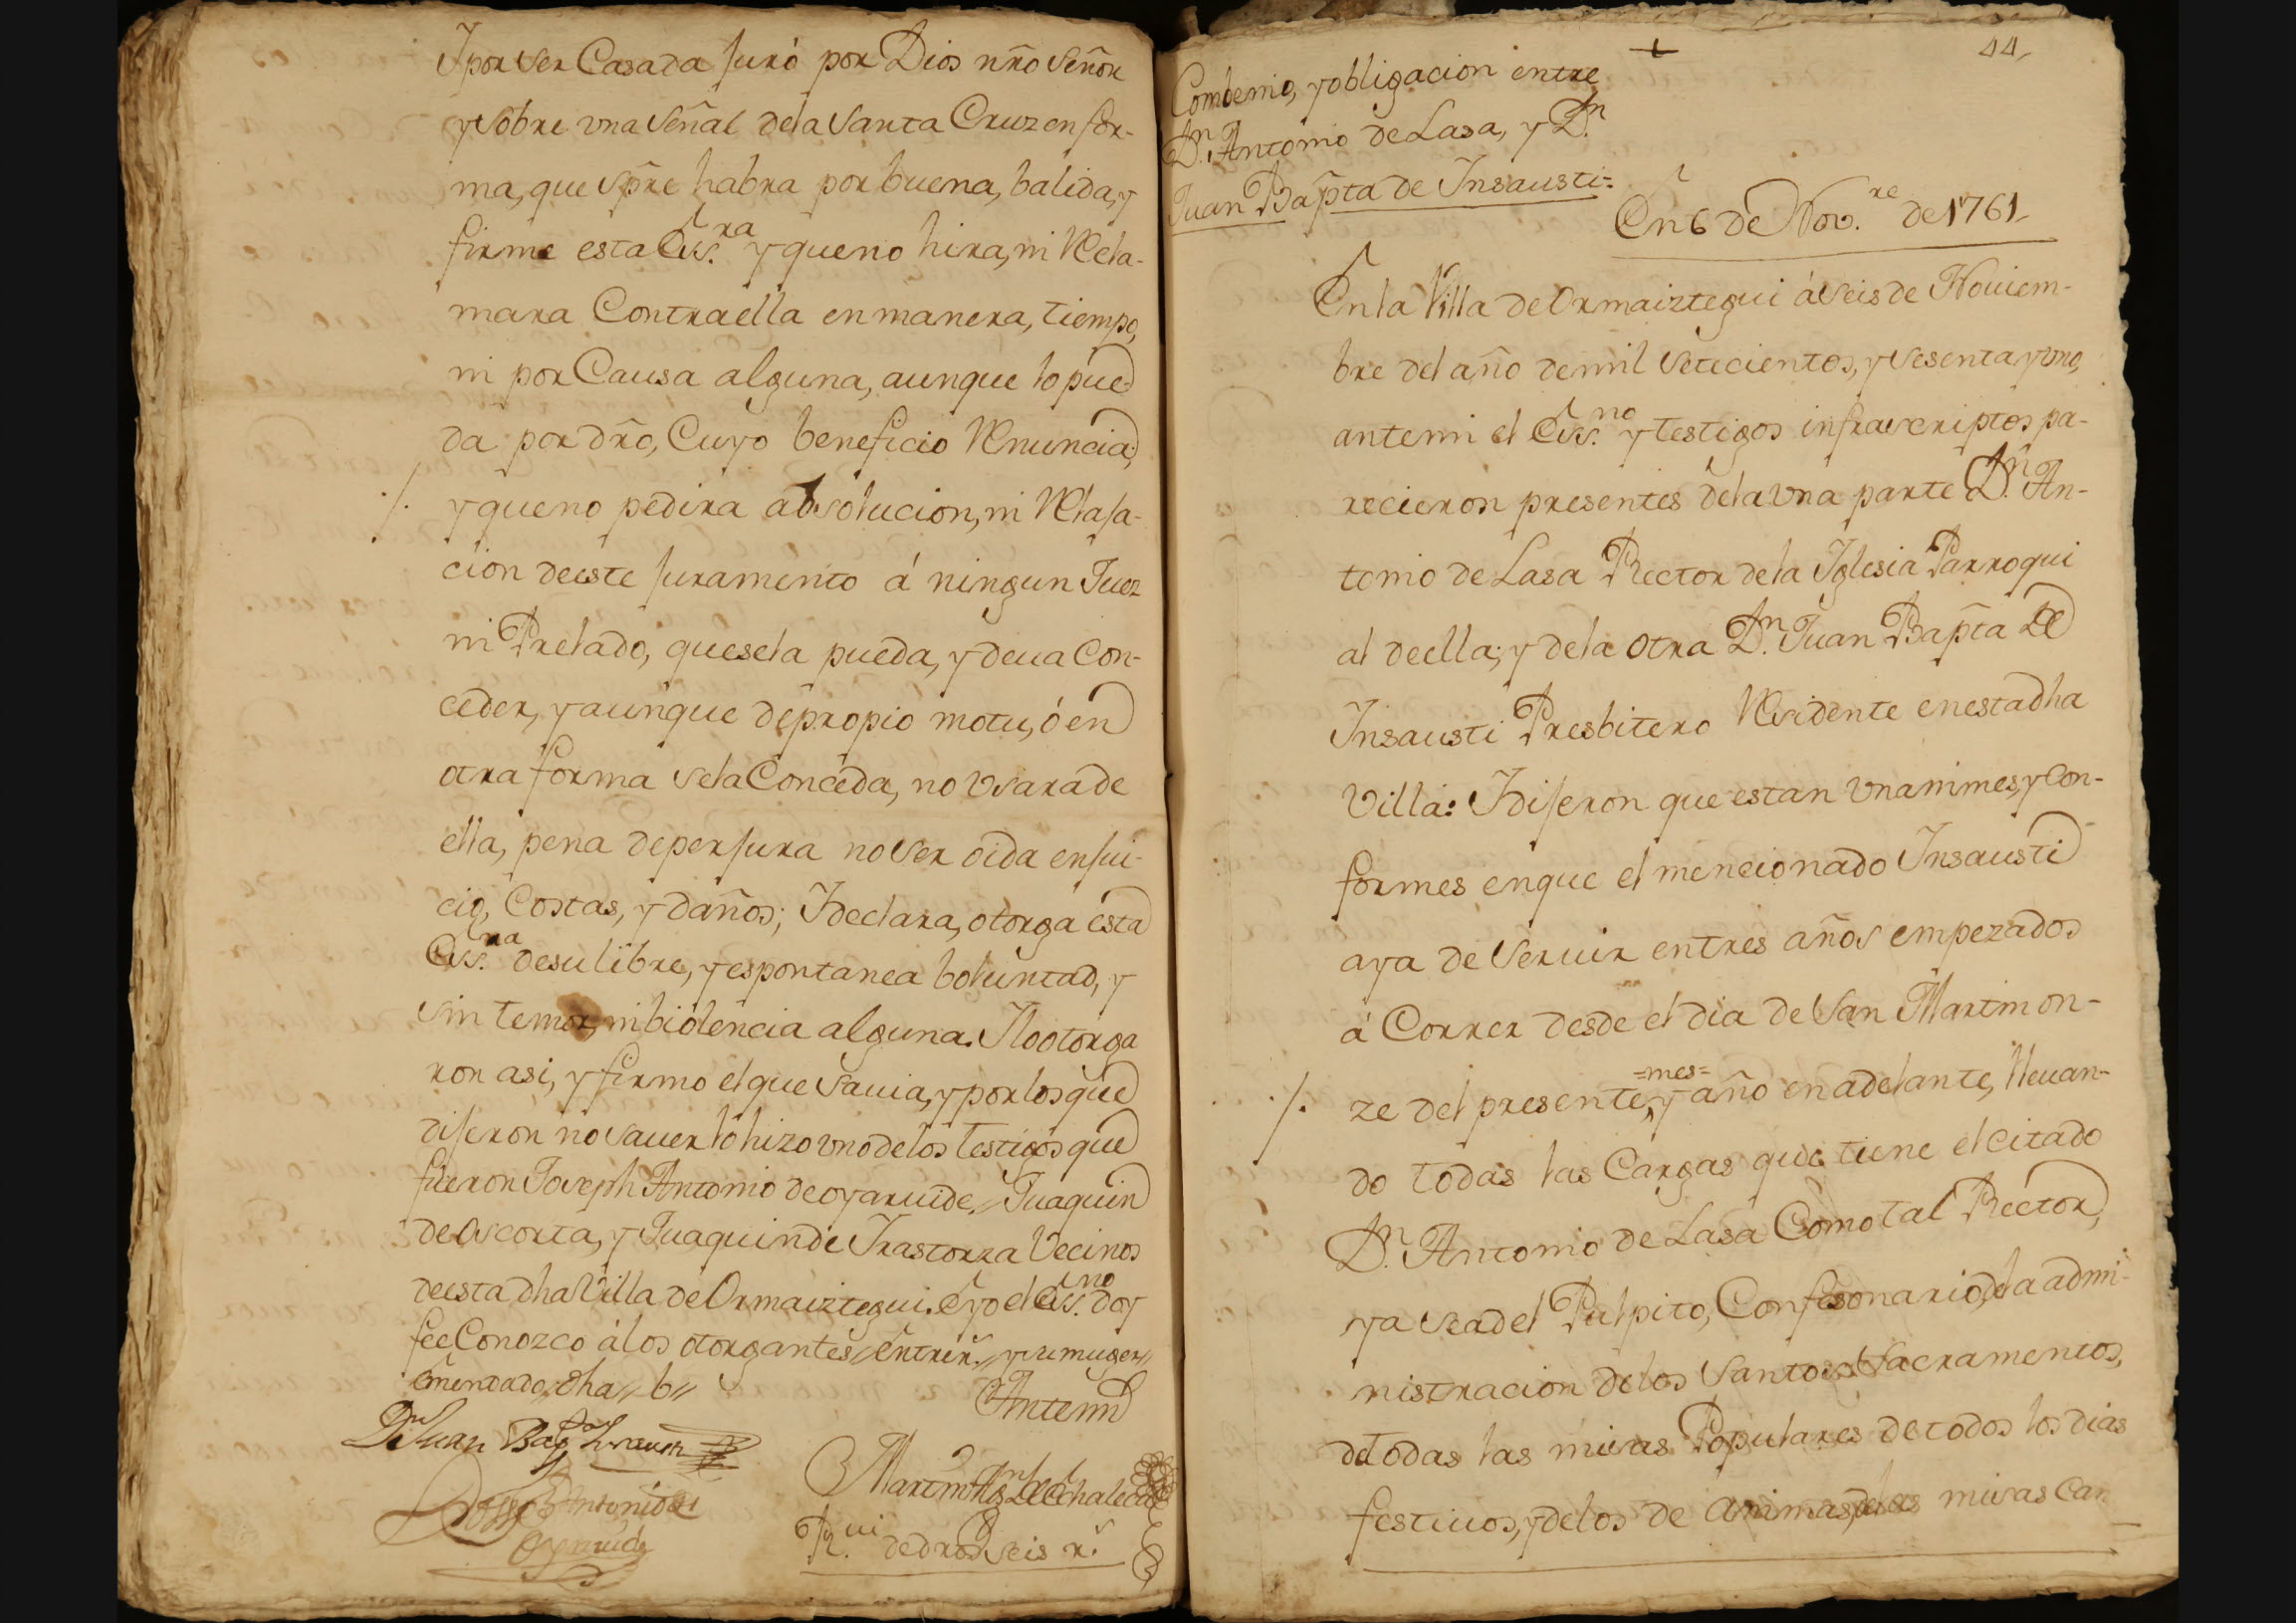 Y por ser Casada juró por Dios nr̃o Señor
y sobre vna señal de la Santa Cruz en for-
ma, que sp̃re habra por buena, balida, y
firme esta Ess.ra y que no hira, ni Recla-
mara Contra ella en manera, tiempo,
ni por Causa alguna, aunque lo pue-
da por dr̃o, Cuyo beneficio Renuncia;
y que no pedira absolucion, ni Relaja-
cion de este juramento á ningun Juez
ni Prelado, que se la pueda, y deua Con-
ceder, y aunque de propio motu, ó en
otra forma se la Conceda, no vsara de
ella, pena de perjura no ser oida en jui-
cio, Costas, y daños; Y declara, otorga esta
Ess.ra de su libre, y espontanea boluntad, y
sin temor, ni biolencia alguna. Y lo otorga
ron asi, y firmo el que sauia, y por los que
dijeron no sauer lo hizo vno de los testigos que
fueron Joseph Antonio de oyaruide, Juaquin
de Ascorta, y Juaquin de Irastorza Vecinos
de esta dha Villa de Ormaiztegui. E yo el Ess.no doy
fee Conozco á los otorgantes // Entrer.s // y su muger //
emendado // dha // b //
Antemi
D.n Juan Bap.ta Insausti
Joseph Antonio de
Oyaruide
Martin de Lechalecu
R.ui de dros seis r.s
+
44
Combenio, y obligacion entre
D.n Antonio de Lasa, y D.n
Juan Bap̃ta de Insausti=
En 6 de Nov.re de 1761
En la Villa de Ormaiztegui á seis de Nouiem-
bre del año de mil setecientos, y sesenta y vno,
ante mi el Ess.no y testigos infraescriptos pa-
recieron presentes de la vna parte D.n An-
tonio de Lasa Rector de la Iglesia Parroqui
al de ella; y de la otra D.n Juan Bap̃ta de
Insausti Presbitero Residente en esta dha
Villa: Y dijeron que estan vnanimes, y Con-
formes en que el mencionado Insausti
aya de seruir en tres años empezados
á Correr desde el dia de San Martin on-
=mes=
ze del presente, y año en adelante, lleuan-
do todas las Cargas que tiene el citado
D.n Antonio de Lasa Como tal Rector,
ya sea del Pulpito, Confesonario, de la admi-
nistracion de los Santos Sacramentos,
de todas las misas Populares de todos los dias
festiuos, y de los de animas, de las misas Can